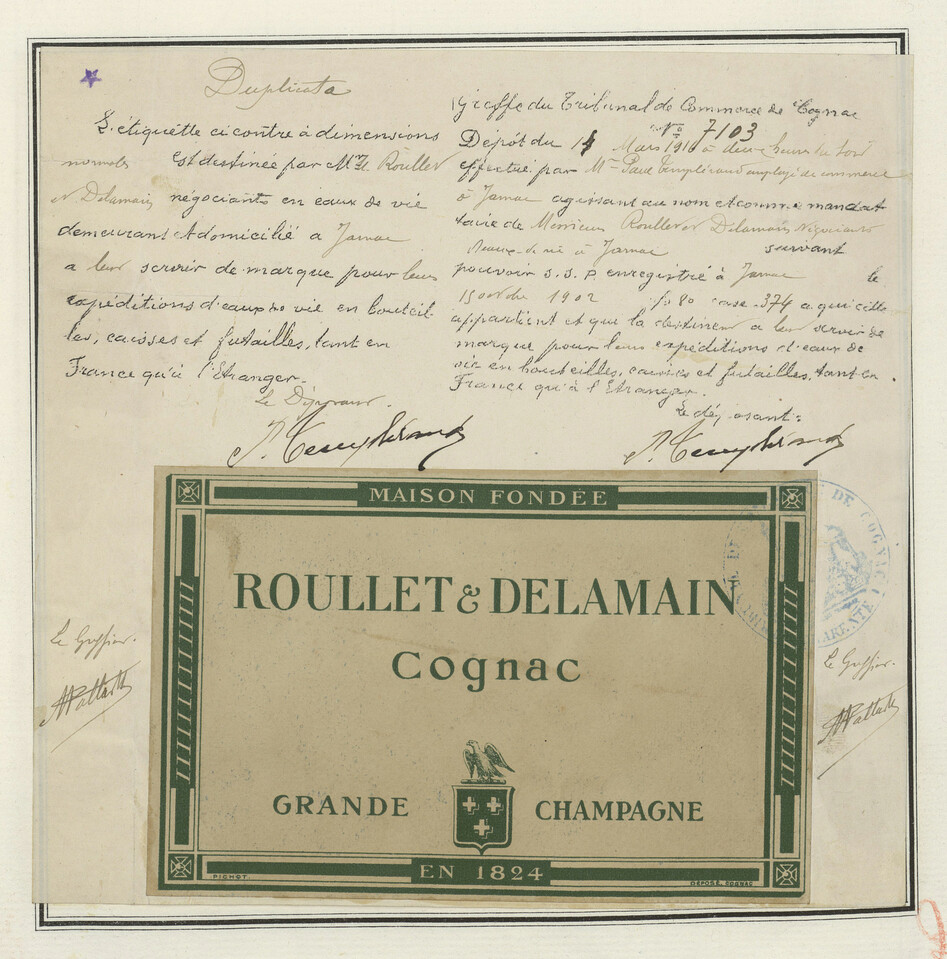 Duplicata
L'étiquette ci contre à dimensions
normales est destinée par MM. Roullet
et Delamain négociants en eaux de vie
demeurant et domicilié à Jarnac
a leur servir de marque pour leurs
expéditions d'eaux de vie en bouteil
les, caisses et futailles, tant en
France qu'à l'Etranger.
Le Déposant.
P. Templéraud
Greffe du Tribunal de Commerce de Cognac
No 7103
Dépôt du 14 Mars 1916 à deux heures du soir
effectué par Mr Paul Templéraud employé de commerce
à Jarnac agissant au nom et comme manda
taire de Messieurs Roullet et Delamain, Négociants
d'eaux de vie à Jarnac suivant
pouvoir S.S.P. enregistré à Jarnac le
15 octobre 1902 fo 80 case 374 a qui elle
appartient et que la destinent a leur servir de
marque pour leurs expéditions d'eaux de
vie en bouteilles, caisses et futailles, tant en
France qu'à l'Etranger.
Le déposant:
P. Templéraud
MAISON FONDÉE
ROULLET & DELAMAIN
Cognac
GRANDE CHAMPAGNE
EN 1824
PICHOT.
DÉPOSÉ COGNAC
DE COGNAC
CHARENTE
Le Greffier.
Le Greffier.